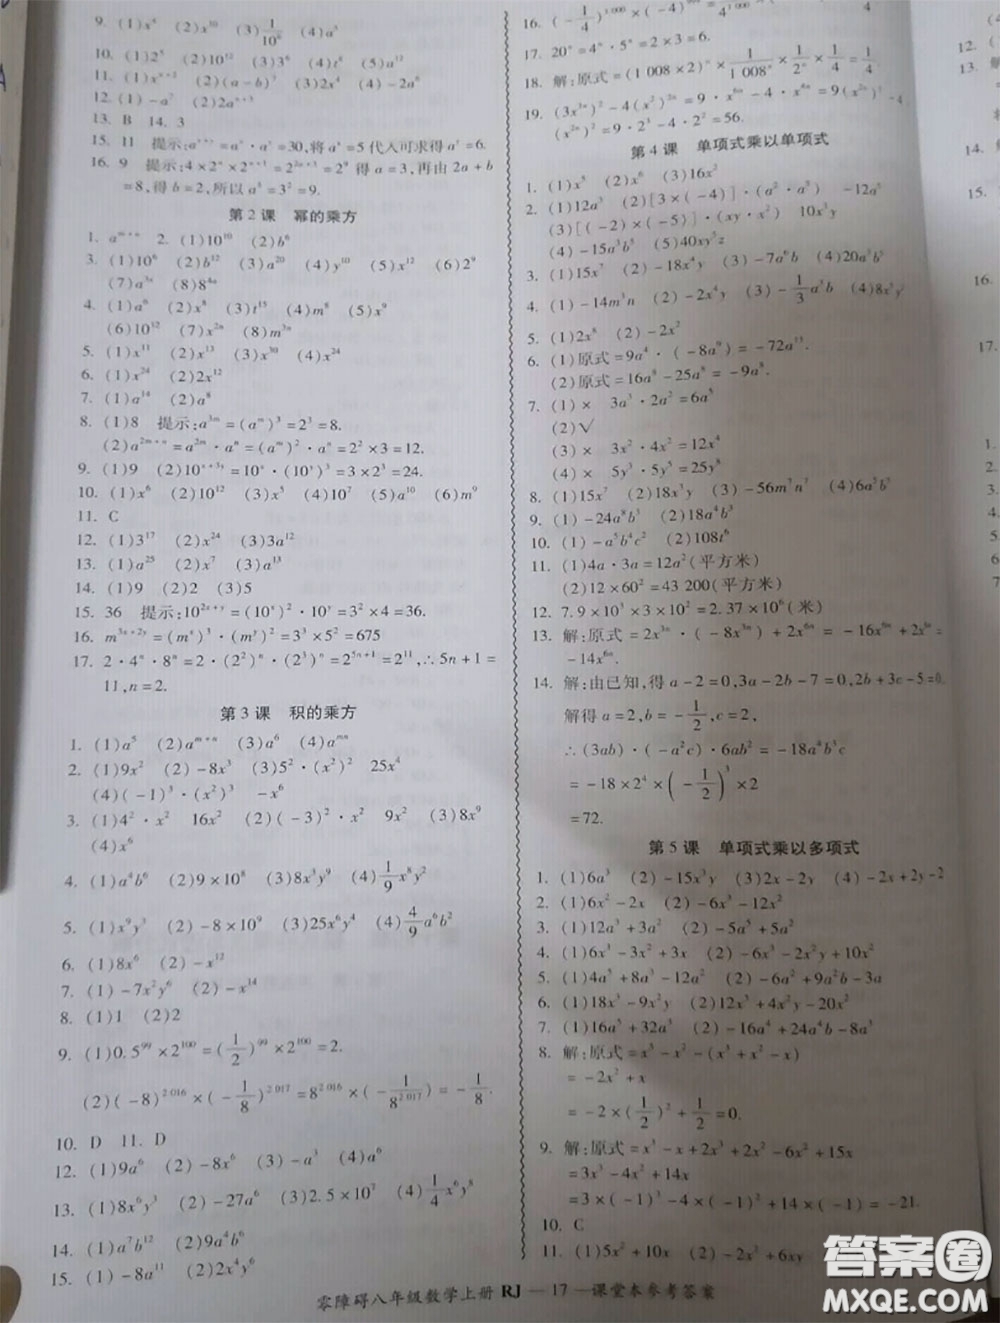 9. (1)x⁵ (2)x¹⁰ (3)1/10⁶ (4)a⁵
10. (1)x² (2)10¹² (3)3⁶ (4)t⁶ (5)a¹²
12. (1)-a⁷ (2)2aⁿ⁺³
13. B 14. 3
第 2 课 幂的乘方
1. aᵐ⁺ⁿ 2. (1)10¹⁰ (2)b⁶
3. (1)10⁶ (2)b¹² (3)a²⁰ (4)y¹⁰ (5)x¹² (6)2⁹
(7)a³ˢ (8)8⁴ᵃ
4. (1)a⁶ (2)x⁸ (3)t¹⁵ (4)m⁸ (5)x⁹
(6)10¹² (7)x²ⁿ (8)m³ⁿ
5. (1)x¹¹ (2)x¹³ (3)x³⁰ (4)x²⁴
6. (1)x²⁴ (2)2x¹²
7. (1)a¹⁴ (2)a⁸
8. (1)8 提示:a³ᵐ=(aᵐ)³=2³=8.
(2)a²ᵐ⁺ⁿ=a²ᵐ·aⁿ=(aᵐ)²·aⁿ=2²×3=12.
9. (1)9 (2)10ˣ⁺³ʸ=10ˣ·(10ʸ)³=3×2³=24.
10. (1)x⁶ (2)10¹² (3)x⁵ (4)10⁷ (5)a¹⁰ (6)m⁹
11. C
12. (1)3¹⁷ (2)x²⁴ (3)3a¹²
13. (1)a²⁵ (2)x⁷ (3)a¹³
14. (1)9 (2)2 (3)5
15. 36 提示:10²ˣ⁺ʸ=(10ˣ)²·10ʸ=3²×4=36.
16. m³ˣ⁺²ʸ=(mˣ)³·(mʸ)²=3³×5²=675
17. 2·4ⁿ·8ⁿ=2·(2²)ⁿ·(2³)ⁿ=2⁵ⁿ⁺¹=2¹¹,∴5n+1=
11,n=2.
第 3 课 积的乘方
1. (1)a⁵ (2)aᵐ⁺ⁿ (3)a⁶ (4)aᵐⁿ
2. (1)9x² (2)-8x³ (3)5²·(x²)² 25x⁴
(4)(-1)³·(x²)³ -x⁶
3. (1)4²·x² 16x² (2)(-3)²·x² 9x² (3)8x⁹
(4)x⁶
4. (1)a⁴b⁶ (2)9×10⁸ (3)8x³y⁹ (4)1/9x⁸y²
5. (1)x⁹y³ (2)-8×10⁹ (3)25x⁶y⁴ (4)4/9a⁶b²
6. (1)8x⁶ (2)-x¹²
7. (1)-7x²y⁶ (2)-x¹⁴
8. (1)1 (2)2
9. (1)0.5⁹⁹×2¹⁰⁰=(1/2)⁹⁹×2¹⁰⁰=2.
(2)(-8)²⁰¹⁶×(-1/8)²⁰¹⁷=8²⁰¹⁶×(-1/8²⁰¹⁷)=-1/8.
10. D 11. D
12. (1)9a⁶ (2)-8x⁶ (3)-a³ (4)a⁶
13. (1)8x⁶y³ (2)-27a⁶ (3)2.5×10⁷ (4)1/4x⁶y⁸
14. (1)a⁷b¹² (2)9a⁴b⁶
15. (1)-8a¹¹ (2)-5x¹²
17. 20ⁿ=4ⁿ·5ⁿ=2×3=6.
18. 解:原式=(1 008×2)ⁿ×1/1 008ⁿ×1/2ⁿ×1/4=1/4
第 4 课 单项式乘以单项式
1. (1)x⁵ (2)x⁶ (3)16x²
2. (1)12a³ (2)[3×(-4)]·(a²·a³) -12a⁵
(3)[(-2)×(-5)]·(xy·x²) 10x³y
(4)-15a³b⁵ (5)40xy⁵z
3. (1)15x⁷ (2)-18x⁴y (3)-7a⁶b (4)20a³b³
4. (1)-14m³n (2)-2x⁴y (3)-1/3a³b (4)8x³y²
5. (1)2x⁸ (2)-2x²
6. (1)原式=9a⁴·(-8a⁹)=-72a¹³.
(2)原式=16a⁸-25a⁸=-9a⁸.
7. (1)× 3a³·2a²=6a⁵
(2)√
(3)× 3x²·4x²=12x⁴
(4)× 5y³·5y⁵=25y⁸
8. (1)15x⁷ (2)18x³y (3)-56m⁷n⁷ (4)6a⁵b³
9. (1)-24a⁸b³ (2)18a⁴b³
10. (1)-a⁵b⁴c² (2)108t⁶
11. (1)4a·3a=12a²(平方米)
(2)12×60²=43 200(平方米)
12. 7.9×10³×3×10²=2.37×10⁶(米)
13. 解:原式=2x³ⁿ·(-8x³ⁿ)+2x⁶ⁿ=-16x⁶ⁿ+2x⁶ⁿ=
-14x⁶ⁿ.
14. 解:由已知,得a-2=0,3a-2b-7=0,2b+3c-5=0.
解得a=2,b=-1/2,c=2,
∴(3ab)·(-a²c)·6ab²=-18a⁴b³c
=-18×2⁴×(-1/2)³×2
=72.
第 5 课 单项式乘以多项式
1. (1)6a³ (2)-15x³y (3)2x-2x² (4)-2x+2y
2. (1)6x²-2x (2)-6x³-12x²
3. (1)12a³+3a² (2)-5a⁵+5a²
4. (1)6x³-3x²+3x (2)-6x³-2x²y+10x
5. (1)4a⁵+8a³-12a² (2)-6a²+9a²b-3a
6. (1)18x³-9x²y (2)12x³+4x²y-20x²
7. (1)16a⁵+32a³ (2)-16a⁴+24a⁴b-8a³
8. 解:原式=x³-x²-(x³+x²-x)
=-2x²+x
=-2×(1/2)²+1/2=0.
9. 解:原式=x³-x+2x³+2x²-6x²+15x
=3x³-4x²+14x
=3×(-1)³-4×(-1)²+14×(-1)=-21.
10. C
11. (1)5x²+10x (2)-2x²+6xy
零障碍八年级数学上册 RJ — 17 —课堂本参考答案
答案圈
MXQE.COM